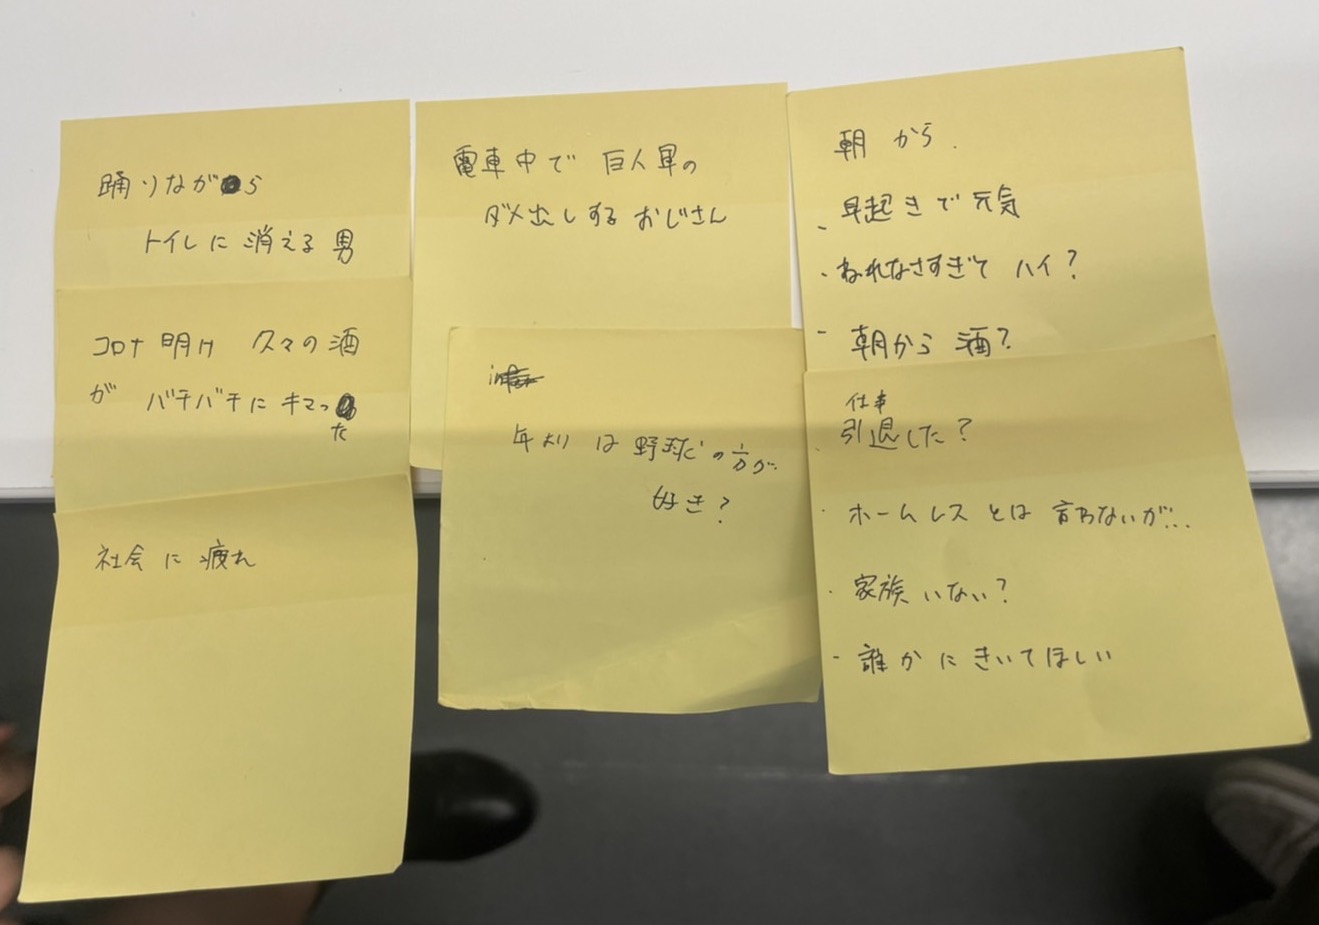 踊りながら
トイレに消える男
コロナ明け 久々の酒
が バチバチにキマっ
た
社会に疲れ
電車中で 巨人軍の
ダメ出しするおじさん
年よりは野球の方が
好き?
朝から.
早起きで元気
・ねれなさすぎて ハイ?
- 朝から酒?
仕事
引退した?
・ホームレスとは 言わないが...
・家族いない?
- 誰かにきいてほしい